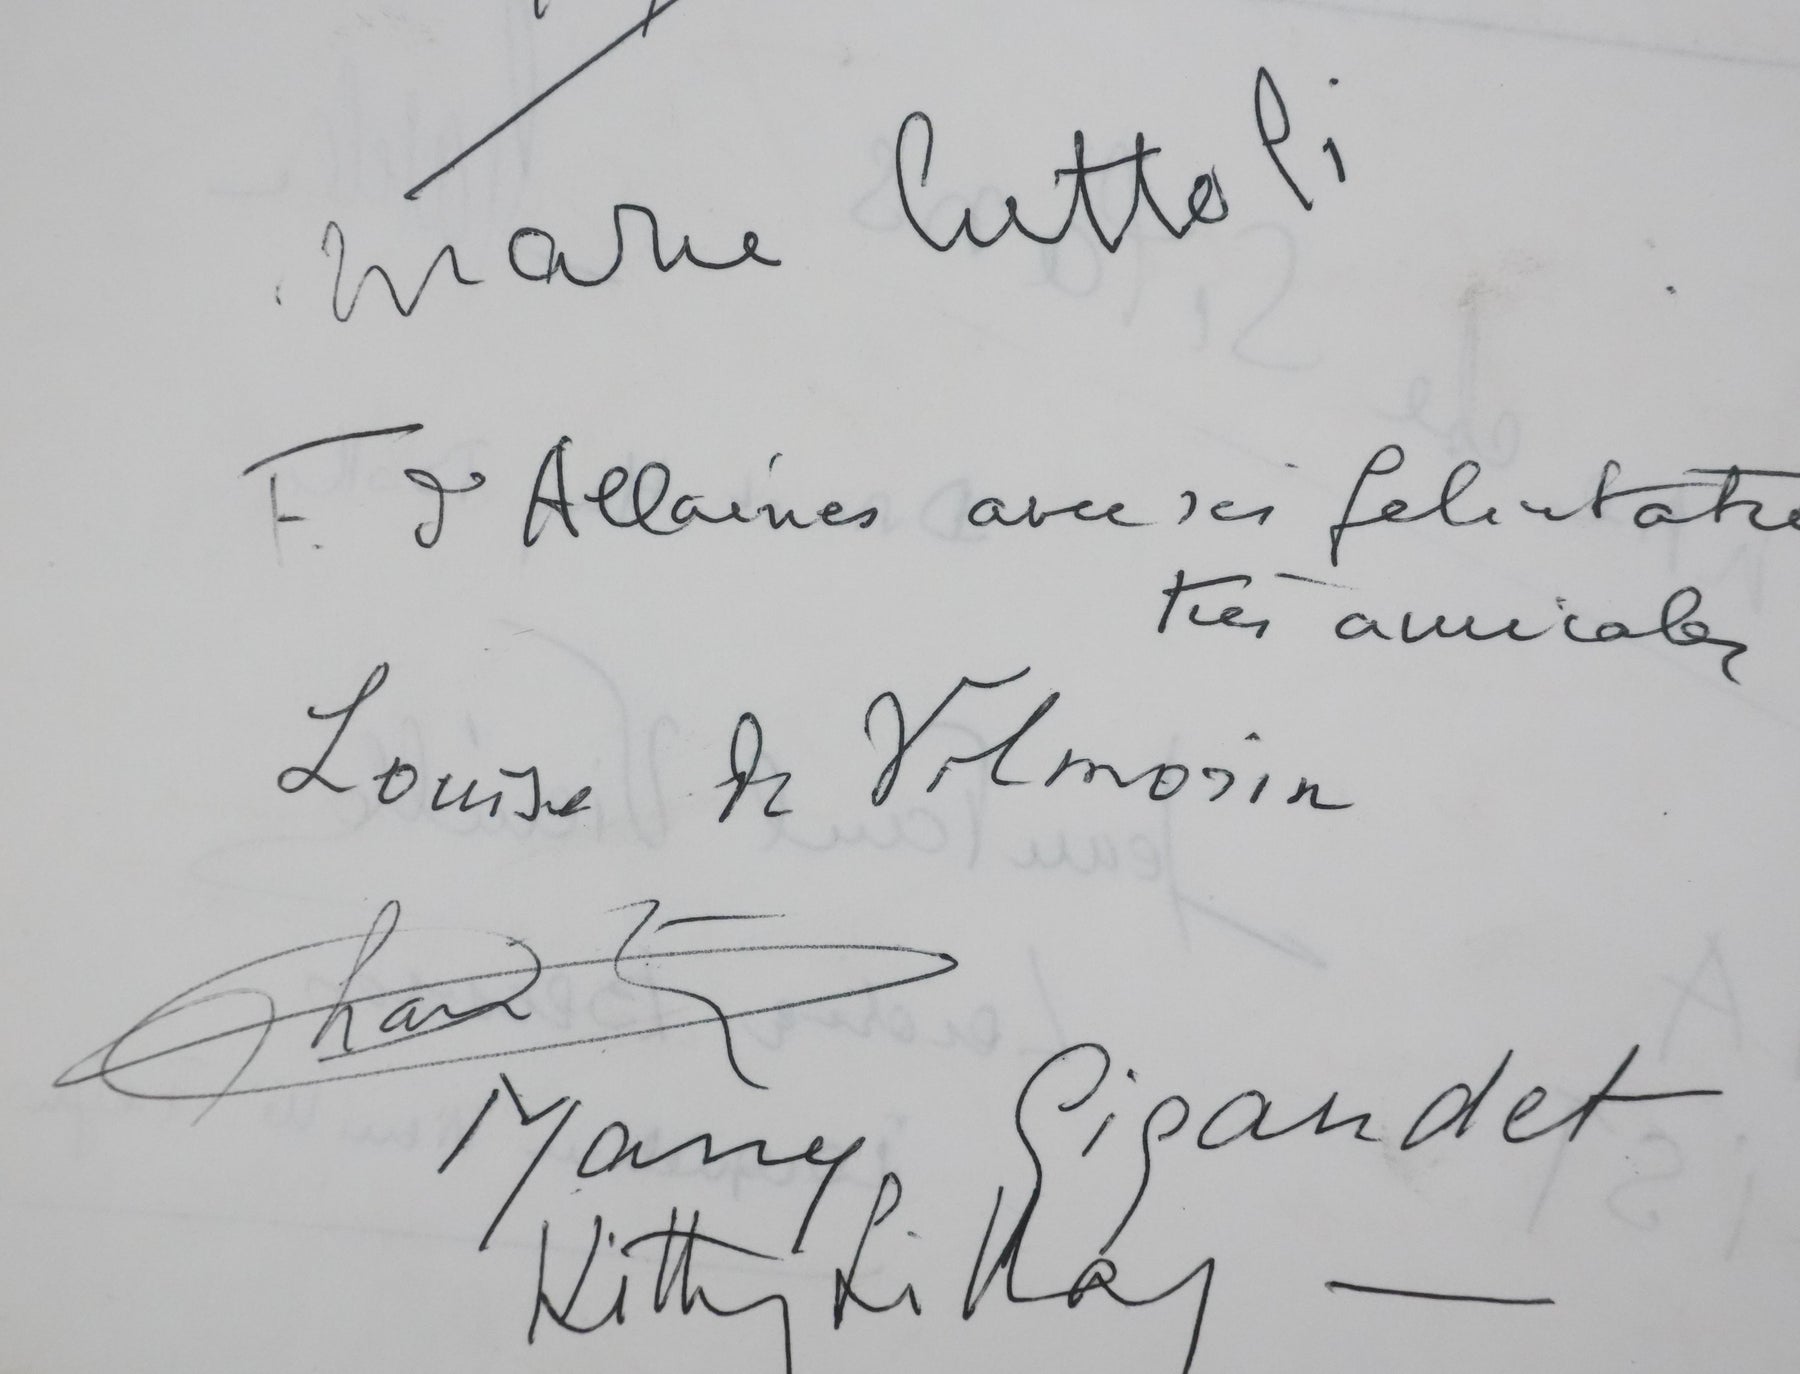 Marie Cuttoli
F. d'Allaines avec ses felicitatio
très amicales
Louise de Vilmorin
Many Gigandet
Kitty Lillaz